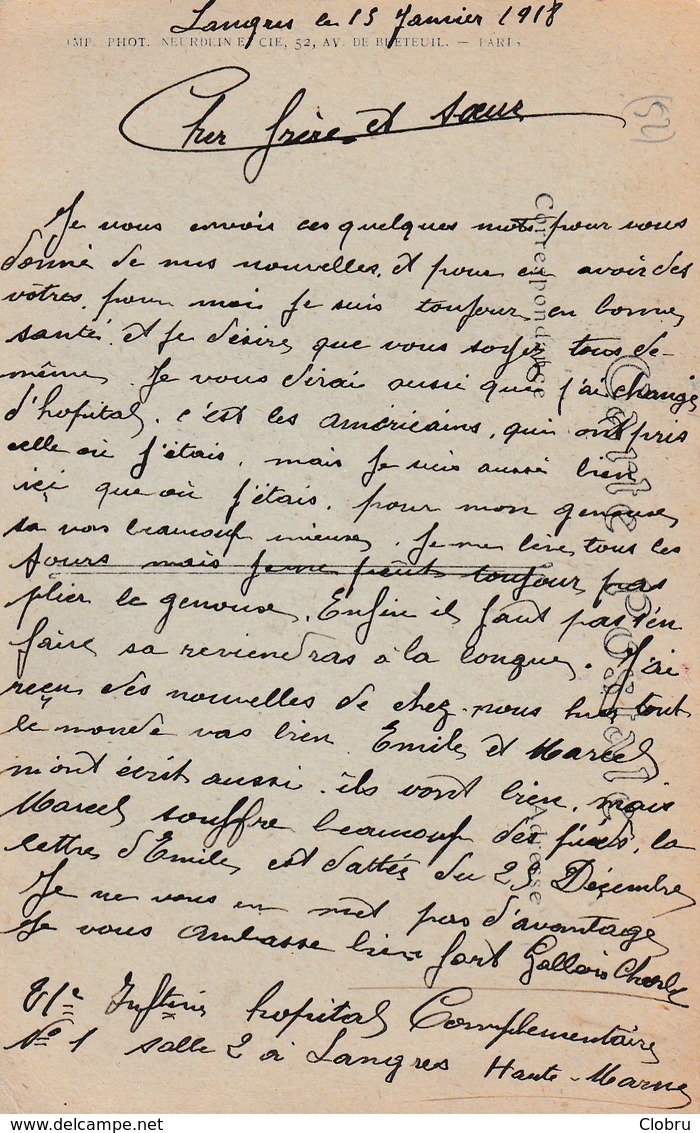 Langres le 15 Janvier 1918
IMP. PHOT. NEURDEIN ET CIE, 52, AV. DE BRETEUIL. — PARIS
Cher frère et sœur
Je vous envois ces quelques mots pour vous
donné de mes nouvelles, et pour en avoir des
vôtres. pour moi je suis toujour en bonne
santé. et je désire que vous soyez tous de
même. Je vous dirai aussi que j'ai changé
d'hopital. c'est les américains, qui ont pris
celle où j'étais. mais je suis aussi bien
içi que où j'étais. pour mon genoux
sa vas beaucoup mieux. Je me lève tous les
jours mais je ne peut toujour pas
plier le genoux. Enfin il faut pas s'en
faire sa reviendras à la longue. J'ai
reçu des nouvelles de chez nous hier tout
le monde vas bien Emile et Marcel
m'ont écrit aussi. ils vont bien, mais
Marcel souffre beaucoup des pieds, la
lettre d'Emile est dattée du 25 Décembre
Je ne vous en met pas d'avantage
Je vous embasse bien fort Gallois Charles
21e hopital Complementaire
No 1 salle 2 à Langres Haute-Marne
Correspondance
Carte Postale
Adresse
delcampe.net
Clobru